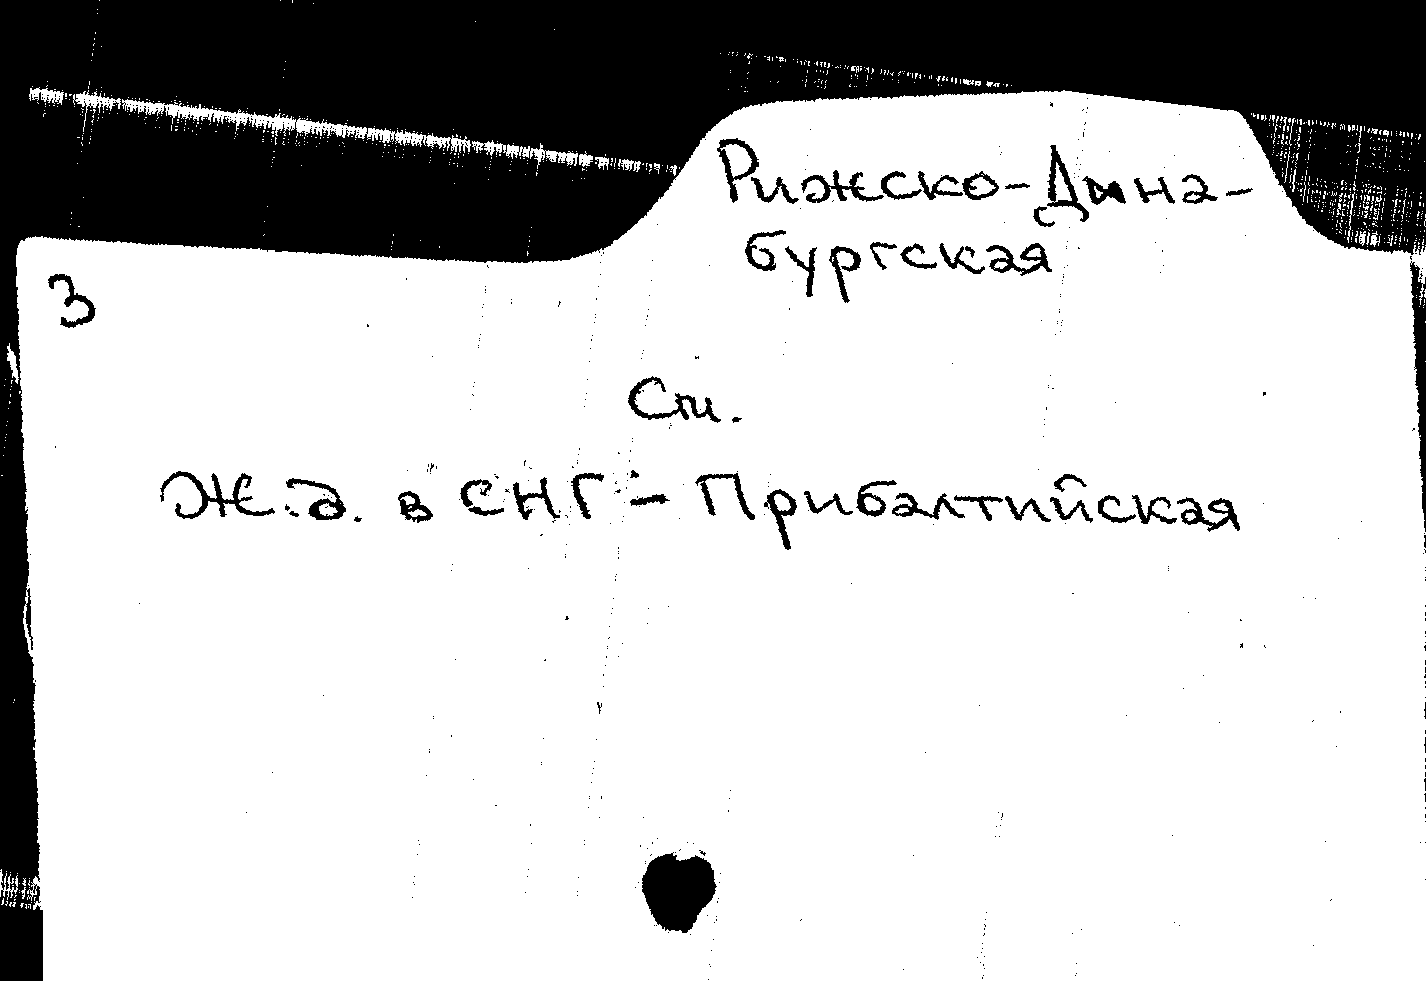 Рижско-Дина-
бургская
3
См.
Ж.д. в СНГ - Прибалтийская